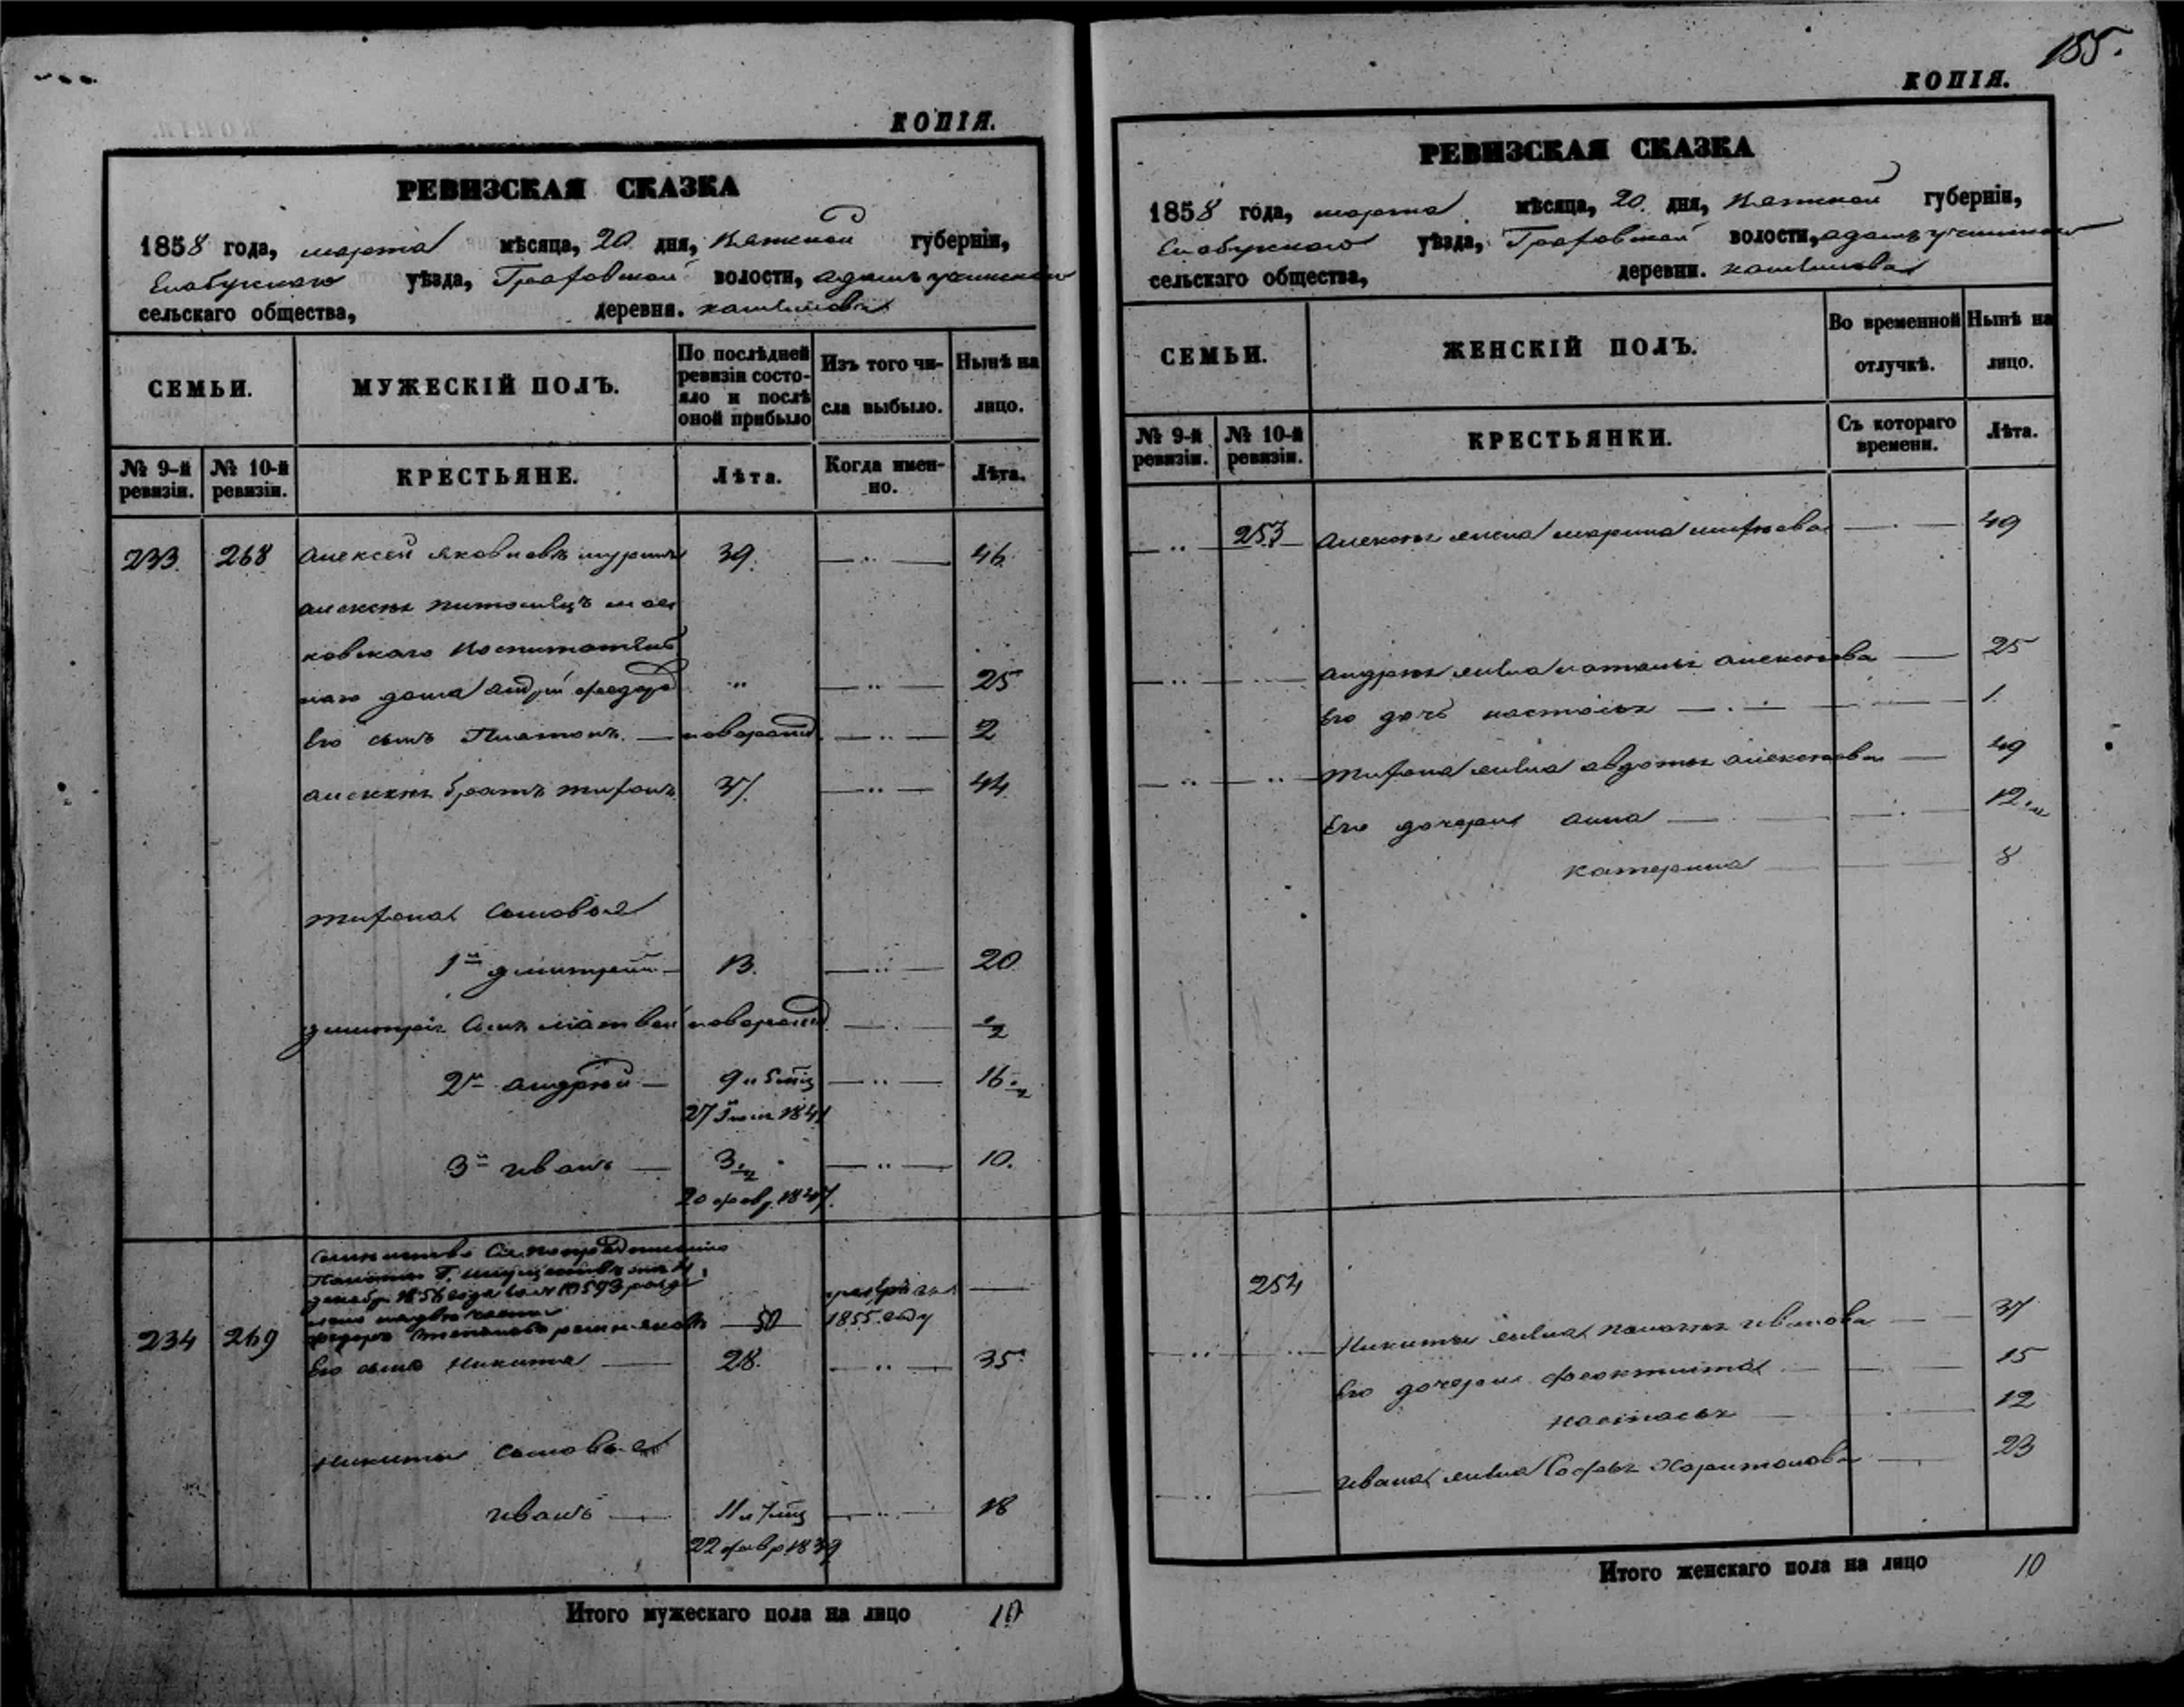 КОПІЯ.
РЕВИЗСКАЯ СКАЗКА
1858 года, марта мѣсяца, 20 дня, Вятской губерніи,
Елабужскаго уѣзда, Граховской волости,
сельскаго общества, деревни.
СЕМЬИ.
МУЖЕСКІЙ ПОЛЪ.
По послѣдней ревизіи состояло и послѣ оной прибыло
Изъ того числа выбыло.
Нынѣ на лицо.
№ 9-й ревизіи.
№ 10-й ревизіи.
КРЕСТЬЯНЕ.
Лѣта.
Когда именно.
Лѣта.
233 268 Алексей Яковлевъ 39. 46
Алексея питомецъ мос
ковскаго воспитатель
наго дома Андрей Федоров 25
Его сынъ Платонъ новорожд 2
Алексея братъ Тифонъ 37. 44
Тифона сыновья
1й Дмитрей 13. 20
Дмитрія сынъ Матвей новорожд 1/2
2й Андрей 9 и 5 мѣц 16 1/2
27 1841
3й Иванъ 3 1/2 10.
20 февр. 1847.
декабр. 1856 года
234 269 Федоръ Степановъ 50 1855 году
Его сынъ Никита 28. 35
Никиты сыновья
Иванъ 11 и 7 мѣц 18
22 февр 1839
Итого мужескаго пола на лицо 10
155.
КОПІЯ.
РЕВИЗСКАЯ СКАЗКА
1858 года, марта мѣсяца, 20 дня, Вятской губерніи,
Елабужскаго уѣзда, Граховской волости,
сельскаго общества, деревни.
СЕМЬИ.
ЖЕНСКІЙ ПОЛЪ.
Во временной отлучкѣ.
Нынѣ на лицо.
№ 9-й ревизіи.
№ 10-й ревизіи.
КРЕСТЬЯНКИ.
Съ котораго времени.
Лѣта.
253 Алексея жена Марина 49
Андрея жена Наталья Алексеева 25
Его дочь Настасья 1.
Тифона жена Авдотья Алексеева 49
Его дочери Анна 12 1/2
Катерина 8
254
Никиты жена Палагея Иванова 37
Его дочери Феоктиста 15
Настасья 12
Ивана жена Софья Харитонова 23
Итого женскаго пола на лицо 10